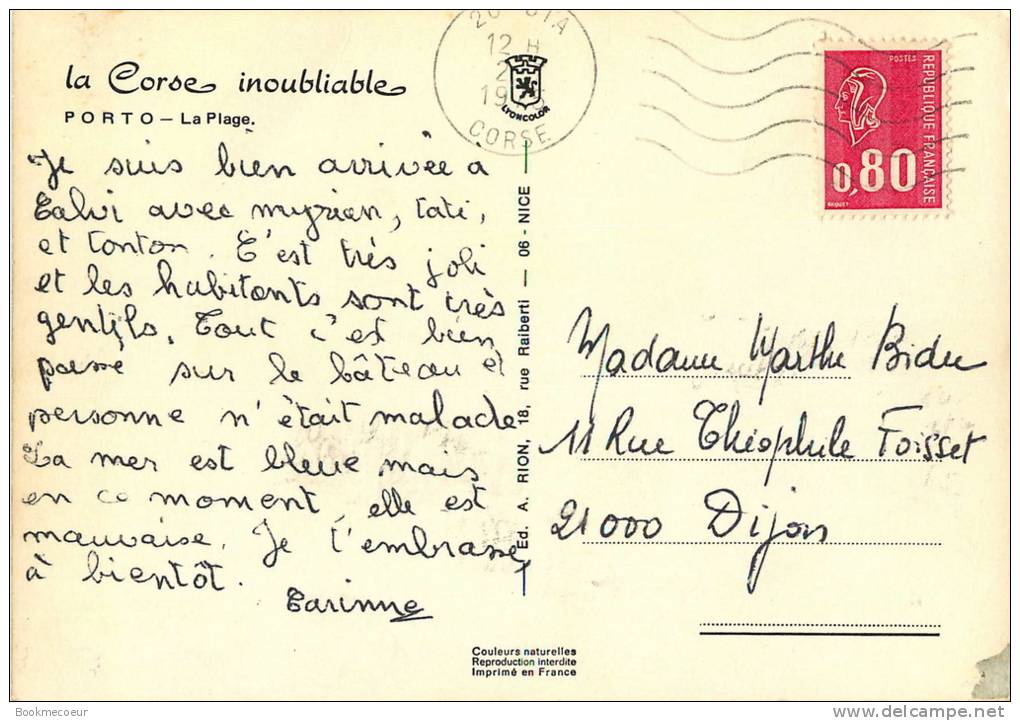 la Corse inoubliable
PORTO – La Plage.
Je suis bien arrivée à
Calvi avec myrian, tati,
et tonton. C'est très joli
et les habitants sont très
gentils. Tout c'est bien
passé sur le bâteau et
personne n'était malade
La mer est bleue mais
en ce moment, elle est
mauvaise. Je t'embrasse,
à bientôt.
Carinne
12 H
CORSE
LYONCOLOR
Ed. A. RION, 18, rue Raiberti — 06 - NICE —
POSTES
REPUBLIQUE FRANÇAISE
0,80
BEQUET
Madame Marthe Bidee
11 Rue Théophile Foisset
21000 Dijon
Couleurs naturelles
Reproduction interdite
Imprimé en France
Bookmecoeur
www.delcampe.net